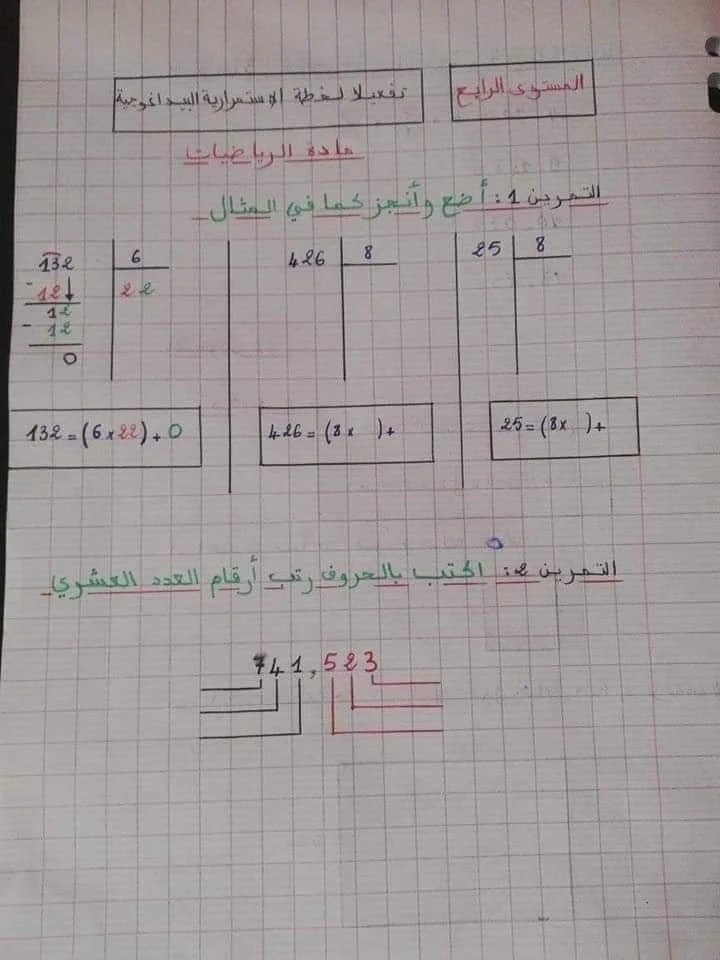 المستوى الرابع
تفعيلا لخطة الاستمرارية البيداغوجية
مادة الرياضيات
التمرين 1: أضع وأنجز كما في المثال
132 6
- 12 22
12
- 12
0
132 = (6 x 22) + 0
426 8
426 = (8 x ) +
25 8
25 = (8 x ) +
التمرين 2: اكتب بالحروف رتب أرقام العدد العشري
741,523